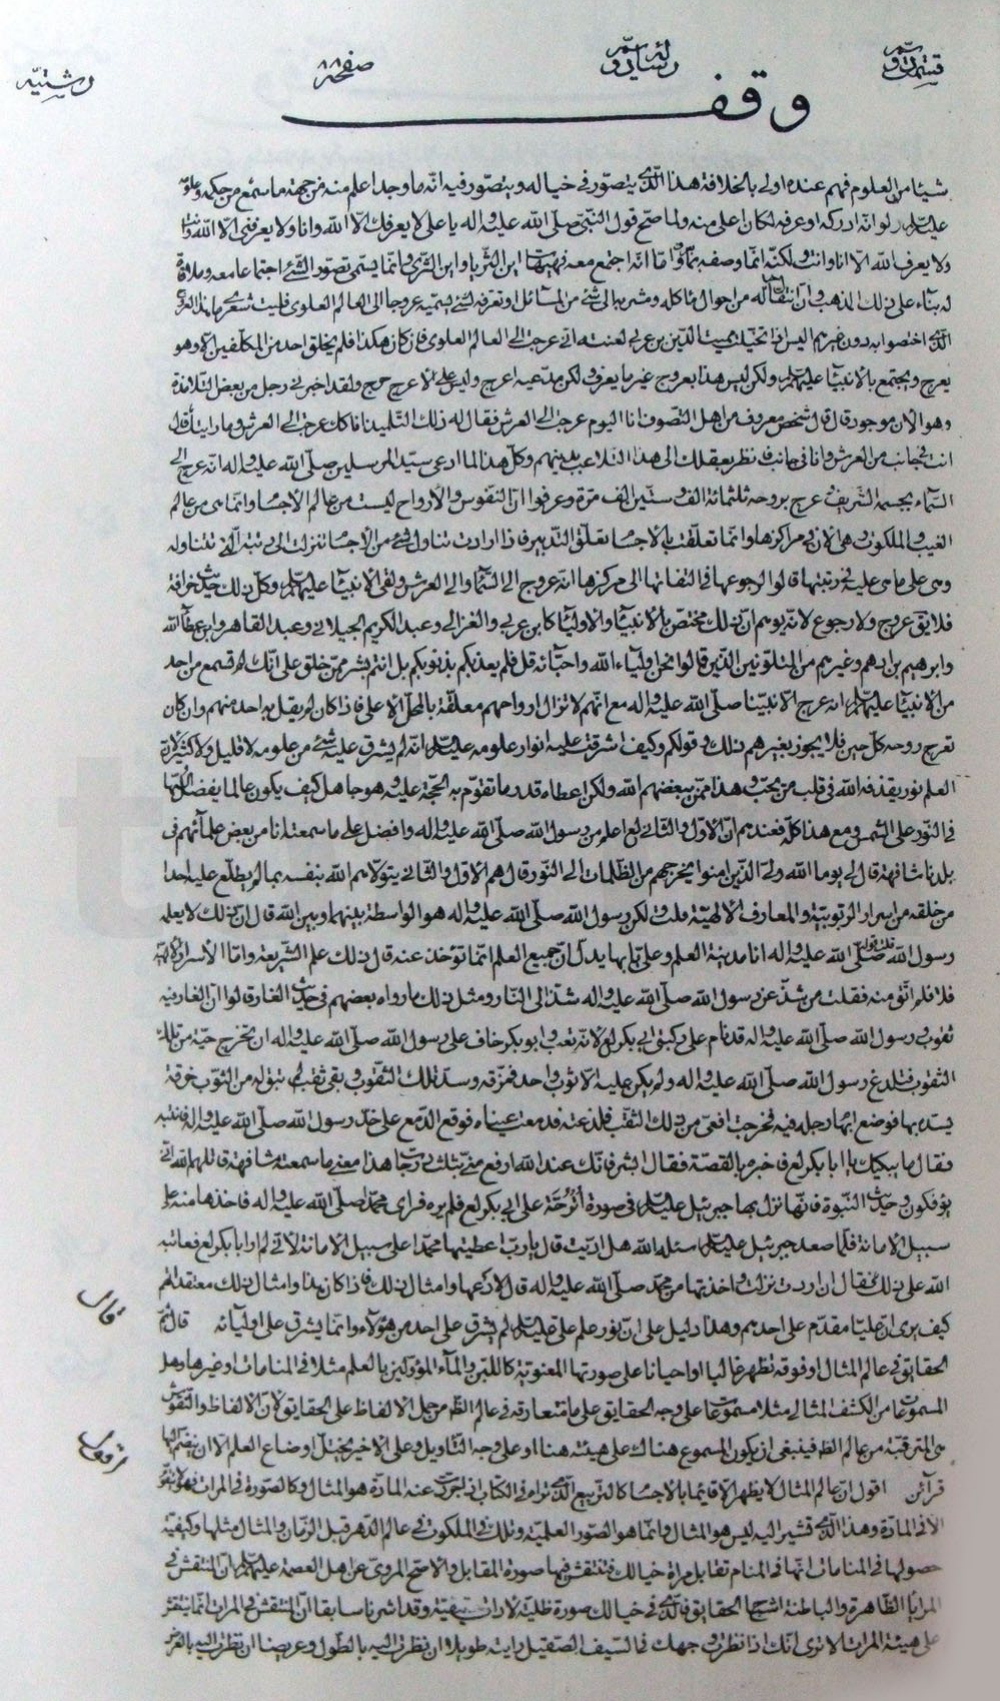 قسمت دوم رساله دوم صفحه ٨٨ رشتيه
وقف
شيئا من العلوم فهم عنده اولى بالخلافة هذا الذى يتصور فى خياله ويتصور فيه انه ما وجد اعلم منه من جهة ما سمع من حكمه وعلومه
عليه السلام ولو انه ادركه او عرفه لكان اعلى منه ولما صح قول النبى صلى الله عليه واله يا على لا يعرفك الا الله وانا ولا يعرفنى الا الله وانت
ولا يعرف الله الا انا وانت ولكنه انما وصفه بما اما انه اجتمع معه فهيهات اين الثريا واين الثرى وانما يسمى تصور الشئ اجتماعا معه وملاقاة
له بناء على ذلك المذهب وان انتقاله من احوال ماكله ومشربه الى شئ من المسائل او تعرفه لشئ يسميه عروجا الى العالم العلوى فليت شعرى ما هذا العروج
الذى اختصوا به دون غيرهم اليس اذا تخيلت مميت الدين بن عربى لعنته اى عرجت الى العالم العلوى فان كان هكذا فلم يخلق احد من المكلفين الا وهو
يعرج ويجتمع بالانبياء عليهم السلام ولكن ليس هذا بعروج غير ما يعرف ولكن مدعيه اعرج وليس على الاعرج حرج ولقد اخبرنى رجل من بعض التلامذة
وهو الان موجود قال قال شخص معروف من اهل التصوف انا اليوم عرجت الى العرش فقال له ذلك التلميذ انا كنت عرجت الى العرش وما رايتك أفكنت
انت فى جانب من العرش وانا فى جانب فنظر بعقلك الى هذا التلاعب بدينهم وكل هذا لما ادعى سيد المرسلين صلى الله عليه واله انه عرج الى
السماء بجسمه الشريف عرج بروحه ثلثمائة الف وستين الف مرة وعرفوا ان النفوس والارواح ليست من عالم الاجسام وانما هى من عالم
الغيب والملكوت وهى الان فى مراكزها وانما تعلقت بالاجسام تعلق التدبير فاذا ارادت تناول شئ من الاجسام تنزلت الى رتبة الة تتناوله
وهى على ما هى عليه فى رتبتها قالوا لرجوعها فى التفاتها الى مركزها انه عروج الى السماء والى العرش ولقى الانبياء عليهم السلام وكل ذلك حديث خرافة
فلا بقى عروج ولا رجوع لانه يوهم ان ذلك مختص بالانبياء والاولياء كابن عربى والغزالى وعبد الكريم الجيلانى وعبد القاهر وابن عطاء الله
وابرهيم بن ادهم وغيرهم من المتلونين الذين قالوا نحن ابناء الله واحباؤه قل فلم يعذبكم بذنوبكم بل انتم بشر ممن خلق على انك لم تسمع من احد
من الانبياء عليهم السلام انه عرج الا نبينا صلى الله عليه واله مع انهم لا تزال ارواحهم معلقة بالمحل الاعلى فاذا كان لم يقل به احد منهم وان كان
تعرج روحه كل حين فلا يجوز بغيرهم ذلك وقولكم وكيف اشرقت عليه انوار علومه عليه السلام انه لم يشرق عليه شئ من علومه لا قليل ولا كثير لان
العلم نور يقذفه الله فى قلب من يحب وهذا ممن يبغضهم الله ولكن اعطاه قدر ما تقوم به الحجة عليه وهو جاهل كيف يكون عالما يفضل السها
فى النور على الشمس ومع هذا كله فعندهم ان الاول والثانى لع اعلم من رسول الله صلى الله عليه واله وافضل على ما سمعت انا من بعض علمائهم فى
بلدنا مشافهة قال لى يوما الله ولى الذين امنوا يخرجهم من الظلمات الى النور قال هم الاول والثانى يتولاهم الله بنفسه بما لم يطلع عليه احدا
من خلقه من اسرار الربوبية والمعارف الالهية قلت ولكن رسول الله صلى الله عليه واله هو الواسطة بينهما وبين الله قال ان ذلك لا يعلمه
رسول الله صلى الله عليه واله قلت قوله انا مدينة العلم وعلى بابها يدل ان جميع العلم انما تؤخذ عنه قال ذلك علم الشريعة واما الاسرار الالهية
فلا فلم اتق منه فقلت من شذ عن رسول الله صلى الله عليه واله شذ الى النار ومثل ذلك ما رواه بعضهم فى حديث الغار قالوا ان الغار فيه
ثقوب ورسول الله صلى الله عليه واله قد نام على ركبتى ابى بكر لع لانه تعب وابو بكر خاف على رسول الله صلى الله عليه واله ان تخرج حية من تلك
الثقوب فتلدغ رسول الله صلى الله عليه واله ولم يكن عليه الا ثوب واحد فمزقه وسد تلك الثقوب وبقى ثقب لم تبق له من الثوب خرقة
يسده بها فوضع ابهام رجله فيه فخرجت افعى من ذلك الثقب فلدغته فدمعت عيناه فوقع الدمع على خد رسول الله صلى الله عليه واله فانتبه
فقال ما يبكيك يا ابا بكر لع فاخبره بالقصة فقال ابشر فانك عند الله ارفع منى بثلث درجات هذا معنى ما سمعته مشافهة قاتلهم الله انى
يؤفكون وحديث النبوة فانها نزل بها جبرئيل عليه السلام فى صورة اترجة على ابى بكر لع فلم يره فراى محمدا صلى الله عليه واله فاخذها منه على
سبيل الامانة فلما صعد جبرئيل عليه السلام اسئله الله هل اديت قال يا رب اعطيتها محمدا على سبيل الامانة لانى لم ار ابا بكر لع فعاتبه
الله على ذلك فقال ان اردت نزلت واخذتها من محمد صلى الله عليه واله قال لا دعها وامثال ذلك فاذا كان هذا وامثال ذلك معتقدهم
كيف يرى ان عليا مقدم على احدهم وهذا دليل على ان نور علم على عليه السلام لم يشرق على احد من هؤلاء وانما يشرق على اوليائه قال ثم
الحقايق فى عالم المثال او فوقه تظهر غالبا او احيانا على صورتها المعنوية كاللبن والماء المؤولين بالعلم مثلا فى المنامات او غيرها وهل
المسموعات من الكشف المثالى مثلا مسموعا على وجه الحقايق على ما تتعارفه فى عالم الظاهر من حمل الالفاظ على الحقايق لان الالفاظ والنقوش
هى المترقية من عالم الظاهر فينبغى ان يكون المسموع هناك على هيئته هنا او على وجه التاويل وعلى الاخير يختل اوضاع العلم الا ان ينضم اليها
قرآئن اقول ان عالم المثال لا يظهر الا قائما بالاجسام كالتربيع الذى تراه فى الكتاب ان جردت عنه المادة هو المثال وكالصورة فى المرات فهو لا يتقوم
الا فى المادة وهذا الذى تشير اليه ليس هو المثال وانما هو الصور العلمية وتلك فى الملكوت فى عالم الدهر قبل الزمان والمثال مثلها وكيفية
حصولها فى المنامات انها فى المنام تقابل مراة خيالك فتنتقش فيها صورة المقابل والاصح المروى عن اهل العصمة عليهم السلام ان المنتقش فى
المرايا الظاهرة والباطنة اشباح الحقايق فالذى فى خيالك صورة ظلية لا ذات حقيقية وقد اشرنا سابقا ان المنتقش فى المرات انما ينتقش
على هيئة المرات الا ترى انك اذا نظرت وجهك فى السيف الصقيل رايته طويلا ان نظرت اليه بالطول وعريضا ان نظرت اليه بالعرض
قال
ترقى